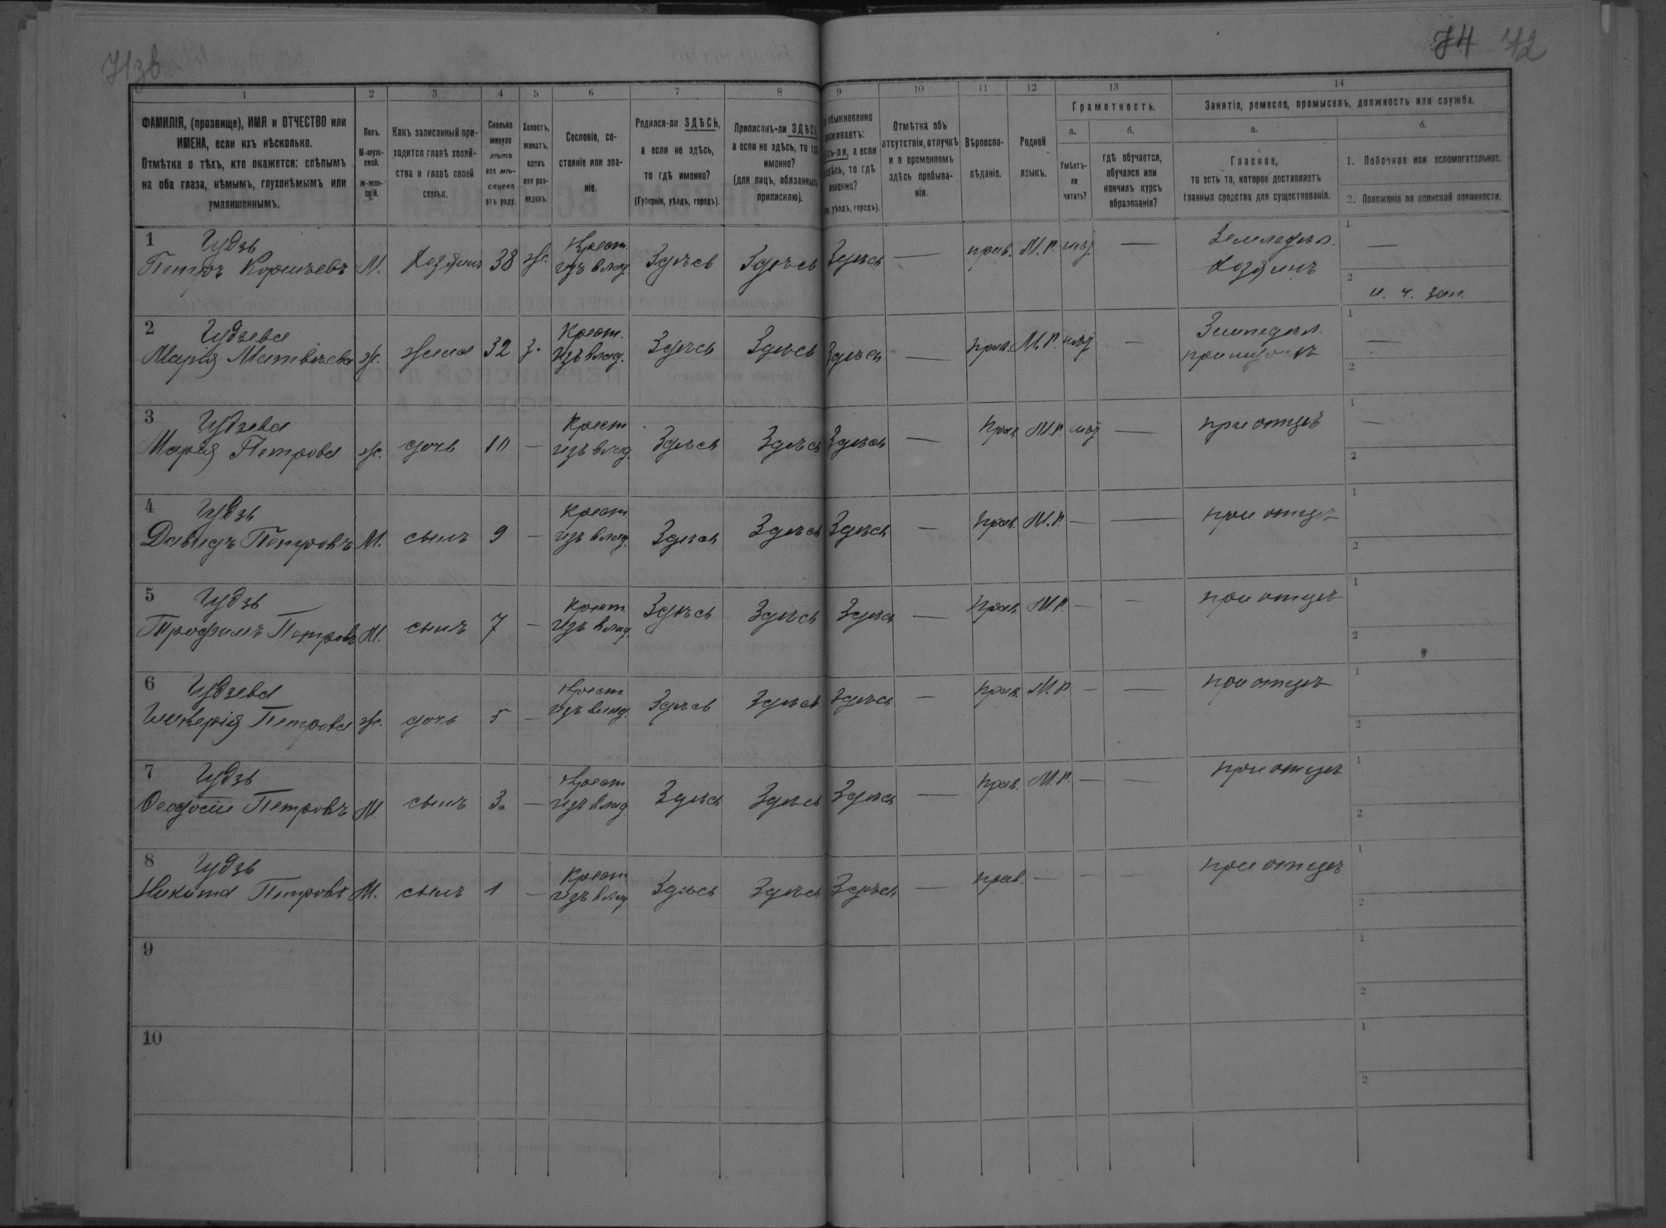 74 72
1 2 3 4 5 6 7 8 9 10 11 12 13 14
ФАМИЛІЯ, (прозвище), ИМЯ и ОТЧЕСТВО или
ИМЕНА, если ихъ нѣсколько.
Отмѣтка о тѣхъ, кто окажется: слѣпымъ
на оба глаза, нѣмымъ, глухонѣмымъ или
умалишеннымъ.
Полъ.
М-муж-
ской.
ж-жен-
скій.
Какъ записанный при-
ходится главѣ хозяй-
ства и главѣ своей
семьи.
Сколько
минуло
лѣтъ
или мѣ-
сяцевъ
отъ роду.
Холостъ,
женатъ,
вдовъ
или раз-
веденъ.
Сословіе, со-
стояніе или зва-
ніе.
Родился-ли ЗДѢСЬ,
а если не здѣсь,
то гдѣ именно?
(Губернія, уѣздъ, городъ).
Приписанъ-ли ЗДѢСЬ
а если не здѣсь, то гдѣ
именно?
(для лицъ, обязанныхъ
припискою).
обыкновенно
проживаетъ:
а если
то гдѣ
именно?
уѣздъ, городъ).
Отмѣтка объ
отсутствіи, отлучкѣ
и о временномъ
здѣсь пребыва-
ніи.
Вѣроиспо-
вѣданіе.
Родной
языкъ.
Грамотность.
а. б.
Умѣетъ-
ли
читать?
гдѣ обучается,
обучался или
кончилъ курсъ
образованія?
Занятіе, ремесло, промыселъ, должность или служба.
а. б.
Главное,
то есть то, которое доставляетъ
главныя средства для существованія.
1. Побочное или вспомогательное.
2. Положеніе по воинской повинности.
1 Гудзь Крест. Земледѣл. 1 —
Петръ М. Хозяинъ 38 ж. изъ влад. Здѣсь Здѣсь Здѣсь — прав. М.Р. — Хозяинъ 2
2 Гудзева Крест. 1 —
Марія Матвѣева ж. жена 32 з. изъ влад. Здѣсь Здѣсь Здѣсь — прав. М.Р. — 2
3 Гудзева Крест 1 —
Марія Петрова ж. дочь 10 — изъ влад. Здѣсь Здѣсь Здѣсь — прав. М.Р. — при отцѣ 2
4 Гудзь Крест 1
Давидъ Петровъ М. сынъ 9 — изъ влад. Здѣсь Здѣсь Здѣсь — прав. М.Р — — при отцѣ 2
5 Гудзь Крест 1
Трофимъ Петровъ М. сынъ 7 — изъ влад. Здѣсь Здѣсь Здѣсь — прав. М.Р. — — при отцѣ 2
6 Гудзева Крест 1
Гликерія Петрова ж. дочь 5 — изъ влад. Здѣсь Здѣсь Здѣсь — прав. М.Р — — при отцѣ 2
7 Гудзь Крест 1
Ѳеодосій Петровъ М. сынъ 3. — изъ влад Здѣсь Здѣсь Здѣсь — прав. М.Р. — — при отцѣ 2
8 Гудзь Крест 1
Никита Петровъ М. сынъ 1 — изъ влад Здѣсь Здѣсь Здѣсь — прав. — — — при отцѣ 2
9 1
2
10 1
2